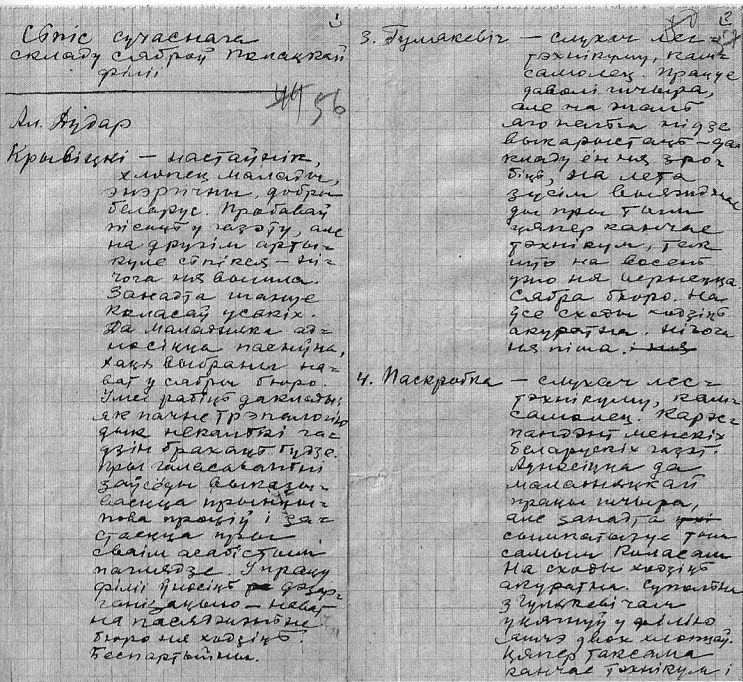 1
Сьпіс сучаснага
складу сяброў Полацкай
філіі
56
Ал. Дудар
Крывіцкі — настаўнік,
хлопец малады,
энэргічны, добры
беларус. Пробаваў
пісаць у газэту, але
на другім арты-
куле сьпікся — ні-
чога ня вышла.
Занадта шануе
Коласаў усякіх.
Да Маладняка ад-
носіцца пасыўна,
хаця выбраны на-
ват у сябры бюро.
Умее рабіць даклады,
як пачне
дык некалькі га-
дзін брахаць будзе.
Пры галасаваньні
заўсёды выказы-
ваецца прынцы-
пова проціў і за-
стаецца пры
сваім асабістым
паглядзе. У працу
філіі ўносіць дэзар-
ганізацыю — нават
на пасяджэньне
бюро ня ходзіць.
Беспартыйны.
2
3. Гумакевіч — слухач лес-
тэхнікуму, кам-
самолец. Працуе
даволі шчыра,
але на жаль
яго нельга нідзе
выкарыстаць — да-
кладу ён ня зро-
біць, на лета
зусім выяжджае
ды пры тым
цяпер канчае
тэхнікум, так
што на восень
ужо ня вернецца.
Сябра бюро. На
ўсе сходы ходзіць
акуратна. Нічога
ня піша.
4. Паскробка — слухач лес-
тэхнікуму, кам-
самолец. Карэс-
пандэнт менскіх
беларускіх газэт.
Адносіцца да
маладняцкай
працы шчыра,
але занадта
сымпатызуе тым
самым Коласам
На сходы ходзіць
акуратна. Супольна
з Гумакевічам
уцягнуў у філію
яшчэ двох хлопцаў.
Цяпер таксама
канчае тэхнікум і